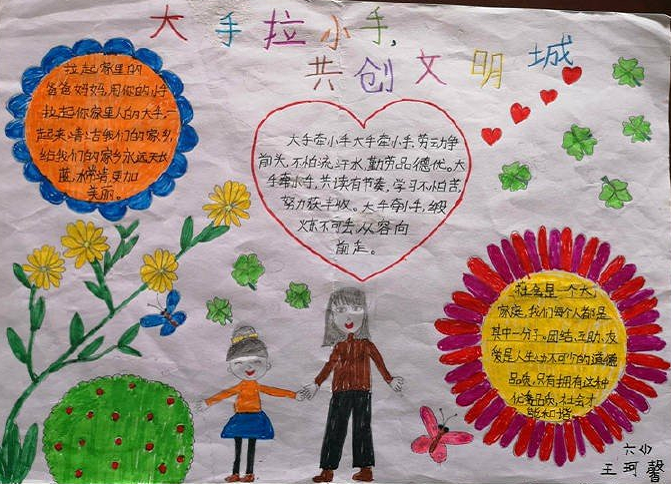 大手拉小手，
共创文明城
拉起家里的
爸爸妈妈，用你的小手
拉起你家里人的大手，一
起来清洁我们的家乡，
给我们的家乡永远天长
蓝，水常清，更加
美丽。
大手牵小手大手牵小手，劳动争
向关，不怕流汗水，勤劳品德优。大
手牵小手，共读有节奏，学习不怕苦，
努力获丰收。大手牵小手，
火不可丢，从容向
前走。
社会是一个大
家庭，我们每个人都是
其中一分子。团结，互助，友
爱是人生必不可少的道德
品质，只有拥有这种
优秀品质，社会才
能和谐。
六(1)
王珂馨